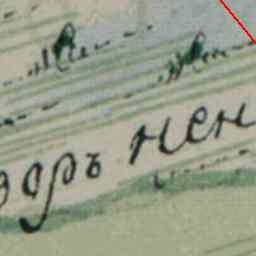 оаръ нен